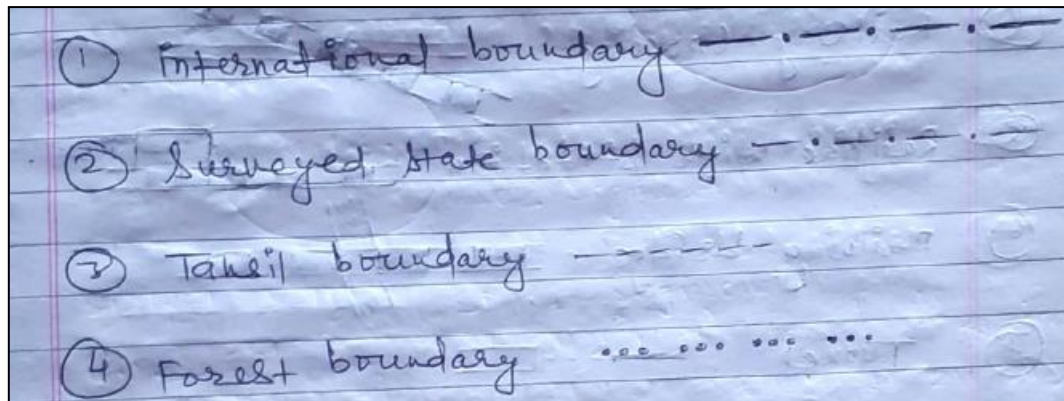 ① international boundary — . — . — . —
② Surveyed state boundary — . — . — . —
③ Tahsil boundary - - - - - -
④ Forest boundary ... ... ... ...